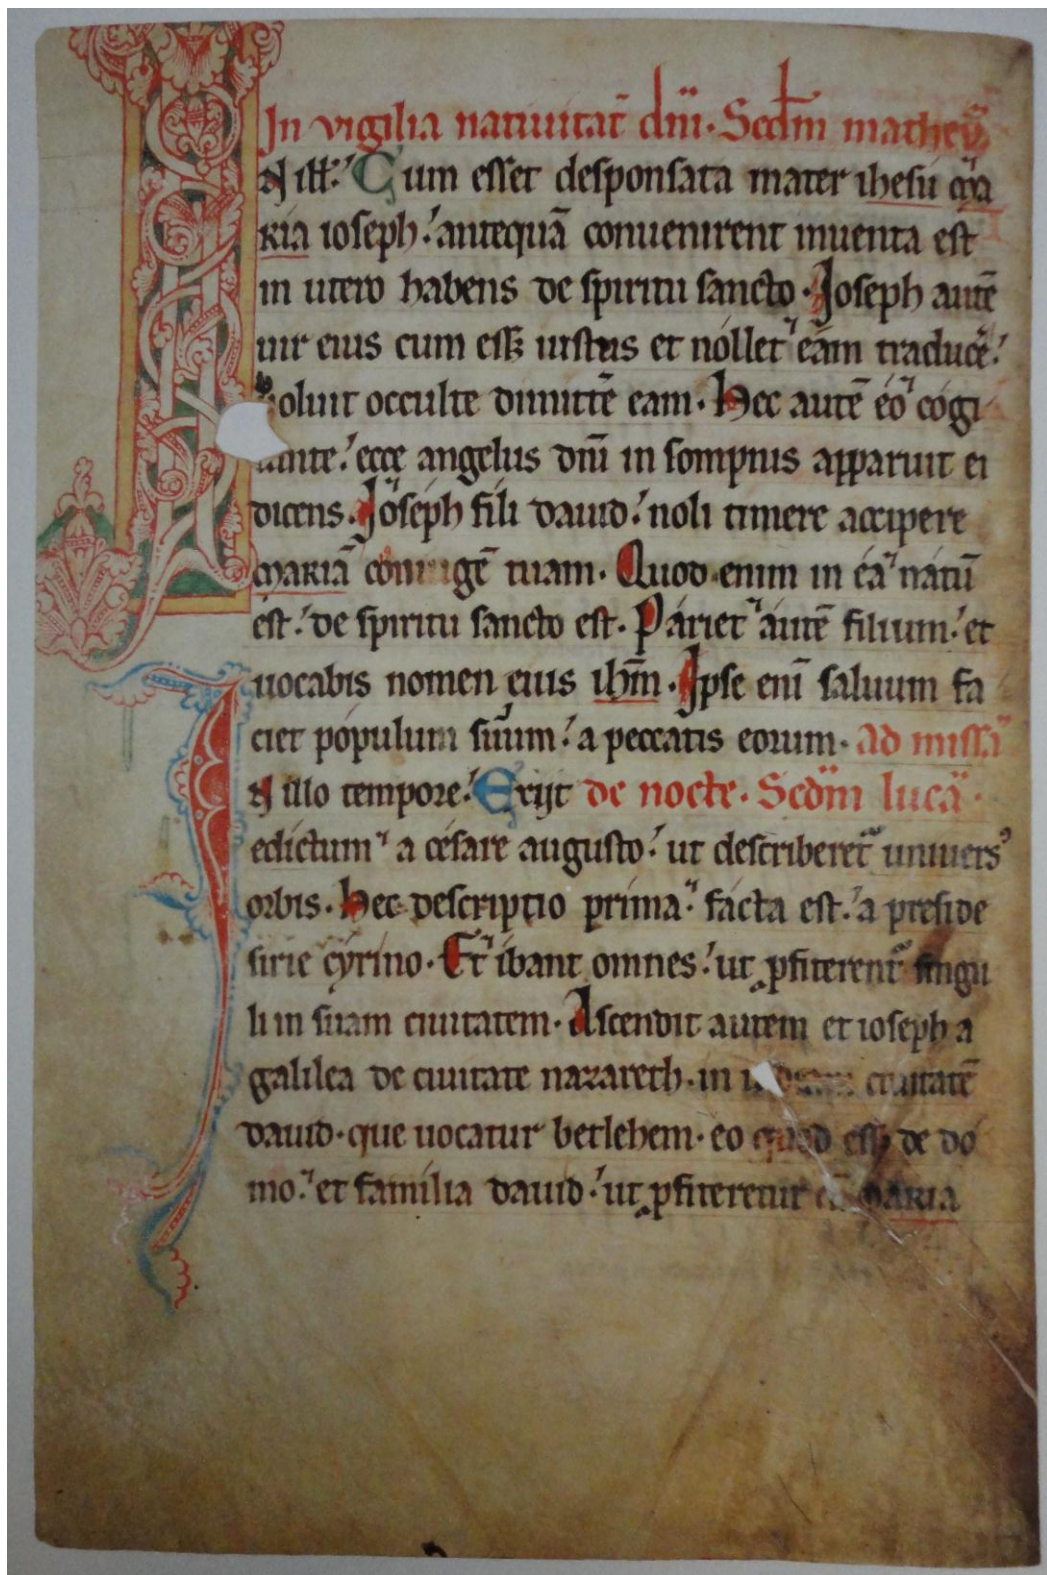 In vigilia natiuitat̄ dn̄i. Scd̄m matheū
N ill̄. Cum esset desponsata mater ihesu ma
ria ioseph. antequā conuenirent inuenta est
in utero habens de spiritu sancto. Ioseph autē
uir eius cum eēt iustus et nollet eam traducē.
uoluit occulte dimittē eam. Hec autē eo cogi
tante. ecce angelus dn̄i in sompnis apparuit ei
dicens. Ioseph fili dauid. noli timere accipere
mariā coniugē tuam. Quod enim in ea natū
est. de spiritu sancto est. Pariet autē filium. et
uocabis nomen eius ihm̄. Ipse enī saluum fa
ciet populum suum. a peccatis eorum. ad missā
N illo tempore. Exijt de nocte. Scdm̄ lucā.
edictum a cesare augusto. ut describeret᷑ uniuers᾿
orbis. Hec descriptio prima. facta est. a preside
sirie cyrino. Et ibant omnes. ut ꝓfiterent᷑ singu
li in suam ciuitatem. Ascendit autem et ioseph a
galilea de ciuitate nazareth. in ciuitatē
dauid. que uocatur betlehem. eo quod eēt de do
mo. et familia dauid. ut ꝓfiteretur cū maria